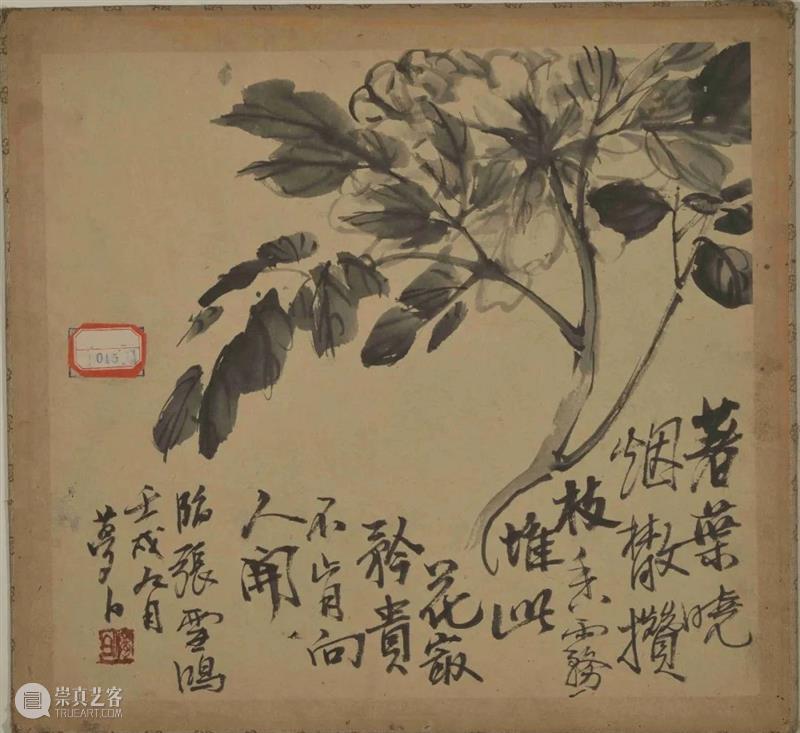 著葉曉
烟撒攢
枝香霧
堆此
花最
矜貴
不肯向
人開
臨張雪鴻
壬戌九月
夢白
015
崇真艺客
TRUEART.COM